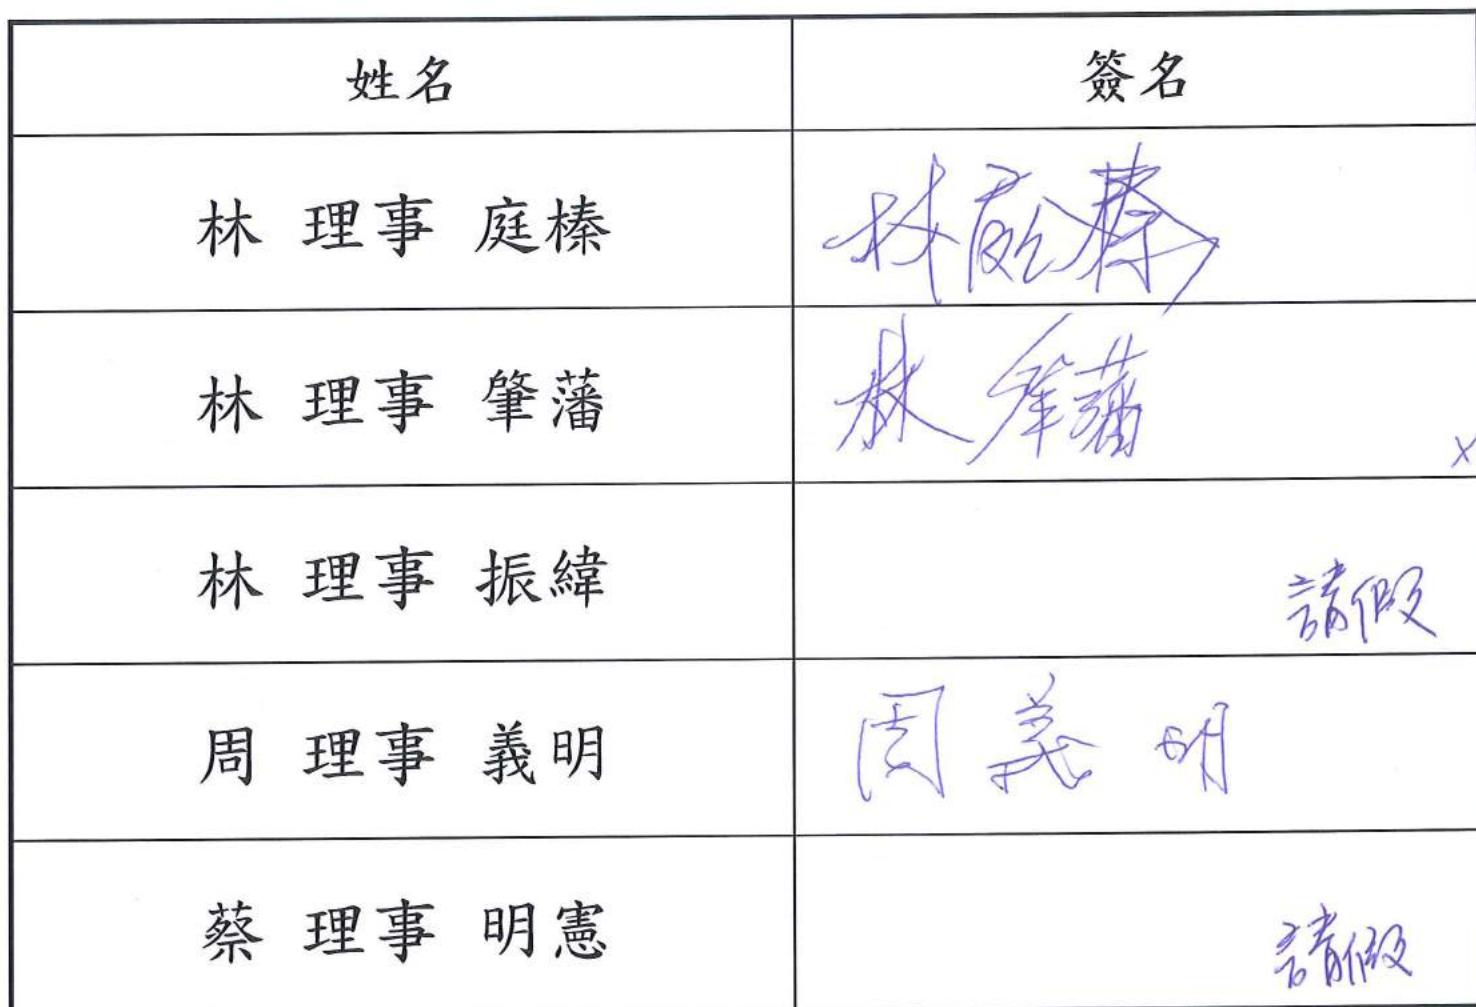 姓名 簽名
林 理事 庭榛 林庭榛
林 理事 肇藩 林肇藩
x
林 理事 振緯 請假
周 理事 義明 周義明
蔡 理事 明憲 請假